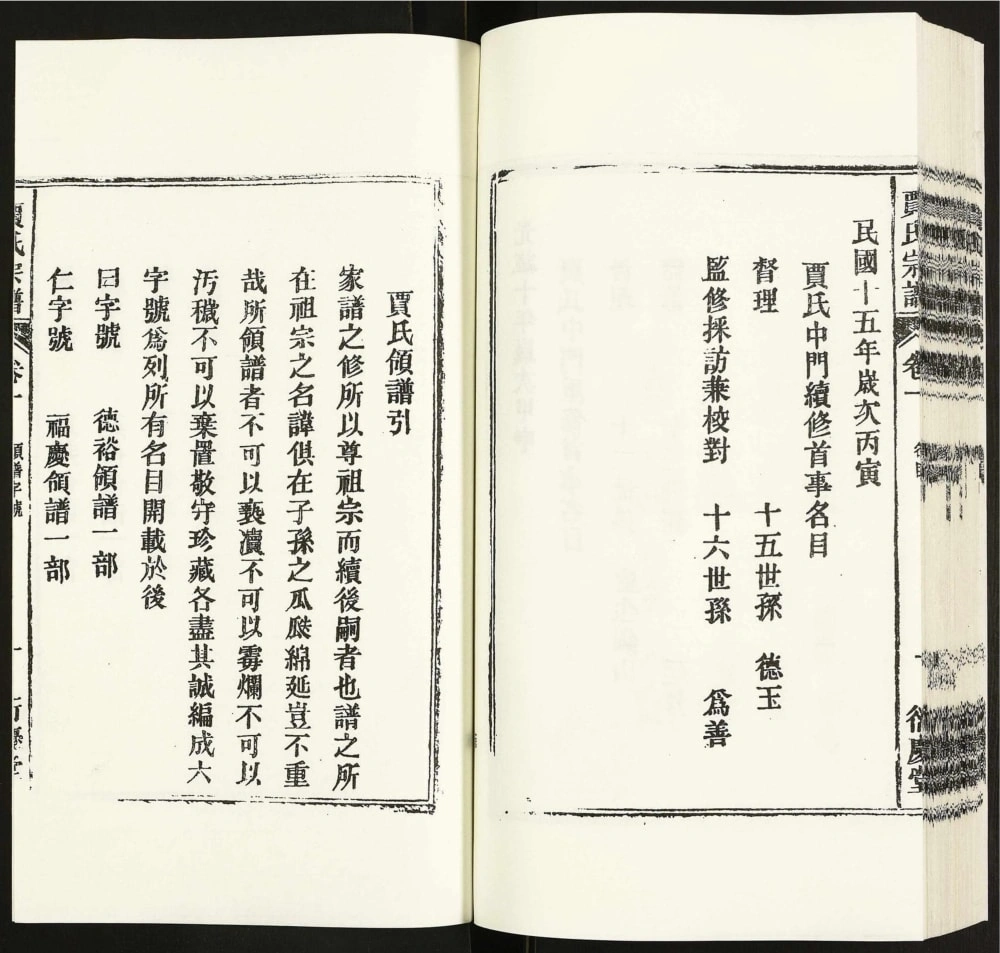 賈氏宗譜 卷一 一 衍慶堂
民國十五年歲次丙寅
賈氏中門續修首事名目
督理 十五世孫 德玉
監修採訪兼校對 十六世孫 爲善
賈氏領譜引
家譜之修所以尊祖宗而續後嗣者也譜之所
在祖宗之名諱俱在子孫之瓜瓞綿延豈不重
哉所領譜者不可以褻瀆不可以霉爛不可以
汚穢不可以棄置敬守珍藏各盡其誠編成六
字號爲列所有名目開載於後
曰字號 德裕領譜一部
仁字號 福慶領譜一部
賈氏宗譜 卷一 領譜字號 一 衍慶堂